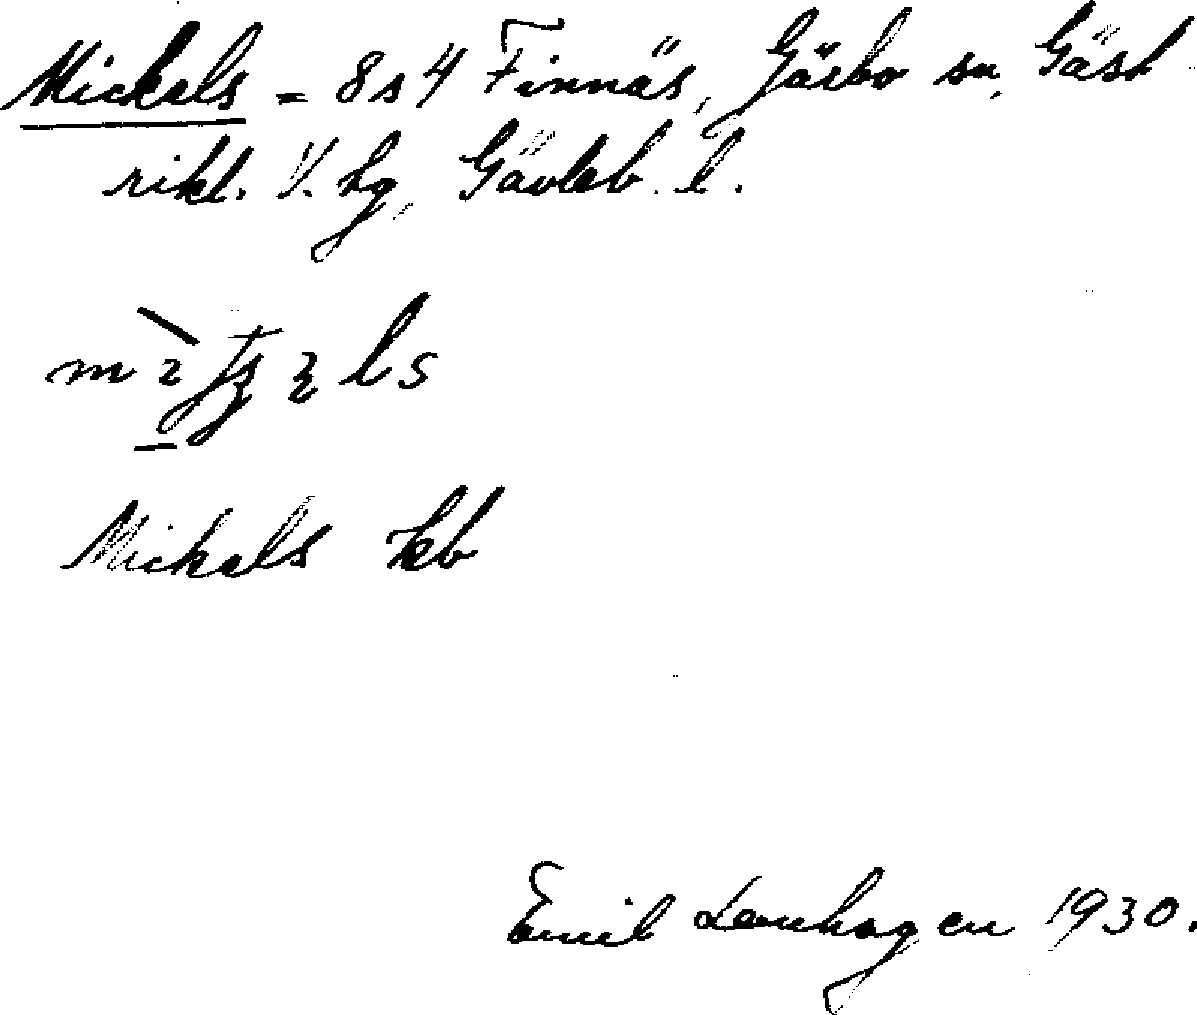 Mickels = 8s4 Finnäs, Järbo sn, Gäst
rikl. V. hg, Gävleb. l.
Mickels kb
Emil Lenhagen 1930.